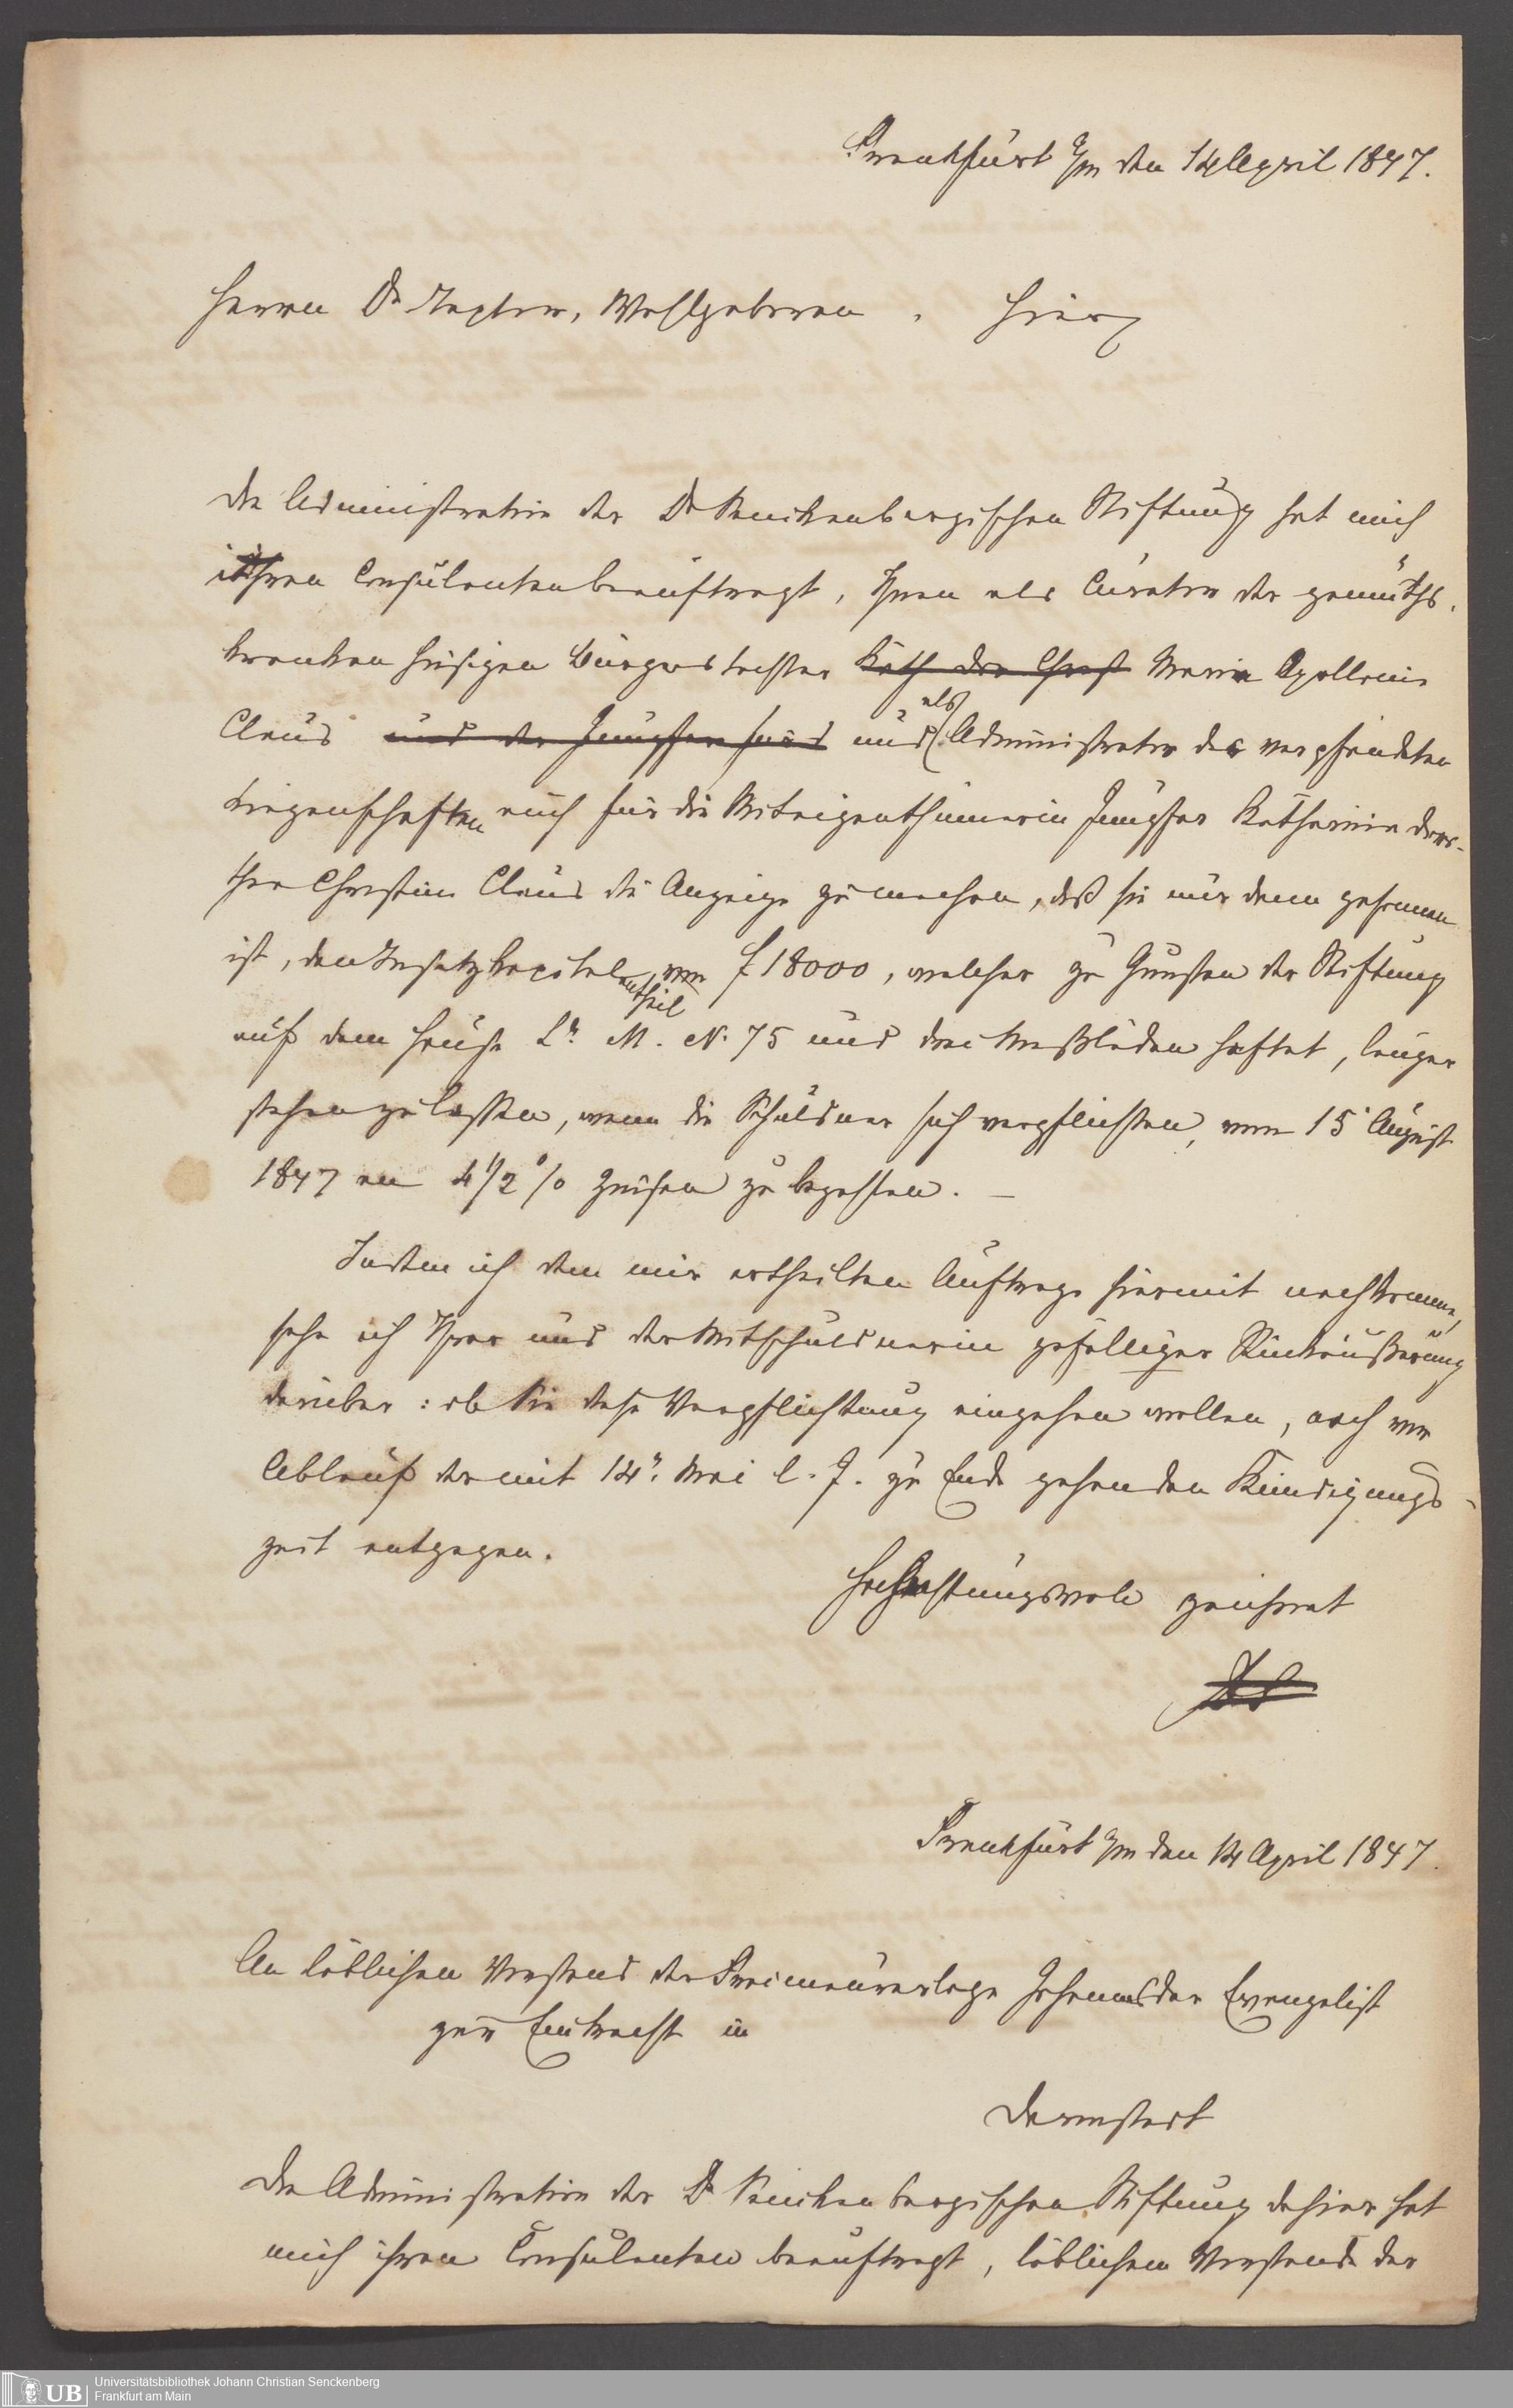 Frankfurt a/m den 14 April 1847.
Herrn Dr Textor, Wohlgeboren, hier
Die Administration der Dr Senckenbergischen Stiftung hat mich
ihren Consulenten beauftragt, Ihnen als Curator der gemüths-
kranken hiesigen Bürgerstochter Kath. Dor. Christ. Maria Apollonia
Claus und der Jungfer und als Administrator der verpfändeten
Liegenschaften auch für die Miteigenthümerin Jungfer Katharina Doro-
thea Christine Claus die Anzeige zu machen, daß sie nur dann gesonnen
ist, den Insatzkapitalantheil von f 18000, welcher zu Gunsten der Stiftung
auf dem Hause Lr. M. N. 75 und drei Meßläden haftet, länger
stehen zu lassen, wenn die Schuldner sich verpflichten, vom 15 August
1847 an 4 1/2 % Zinsen zu bezahlen. –
Indem ich dem mir ertheilten Auftrage hiermit nachkomme,
sehe ich Ihrer und der Mitschuldnerin gefälliger Rückäußerung
darüber: ob Sie diese Verpflichtung eingehen wollen, noch vor
Ablauf der mit 14n. Mai l. J. zu Ende gehenden Kündigungs-
zeit entgegen.
Hochachtungsvoll zeichnet
Frankfurt a/m den 14 April 1847.
An löblichen Vorstand der Freimaurerloge Johannes der Evangelist
zur Eintracht in
Darmstadt
Die Administration der Dr Senckenbergischen Stiftung dahier hat
mich ihren Consulenten beauftragt, löblichem Vorstande der
UB
Universitätsbibliothek Johann Christian Senckenberg
Frankfurt am Main